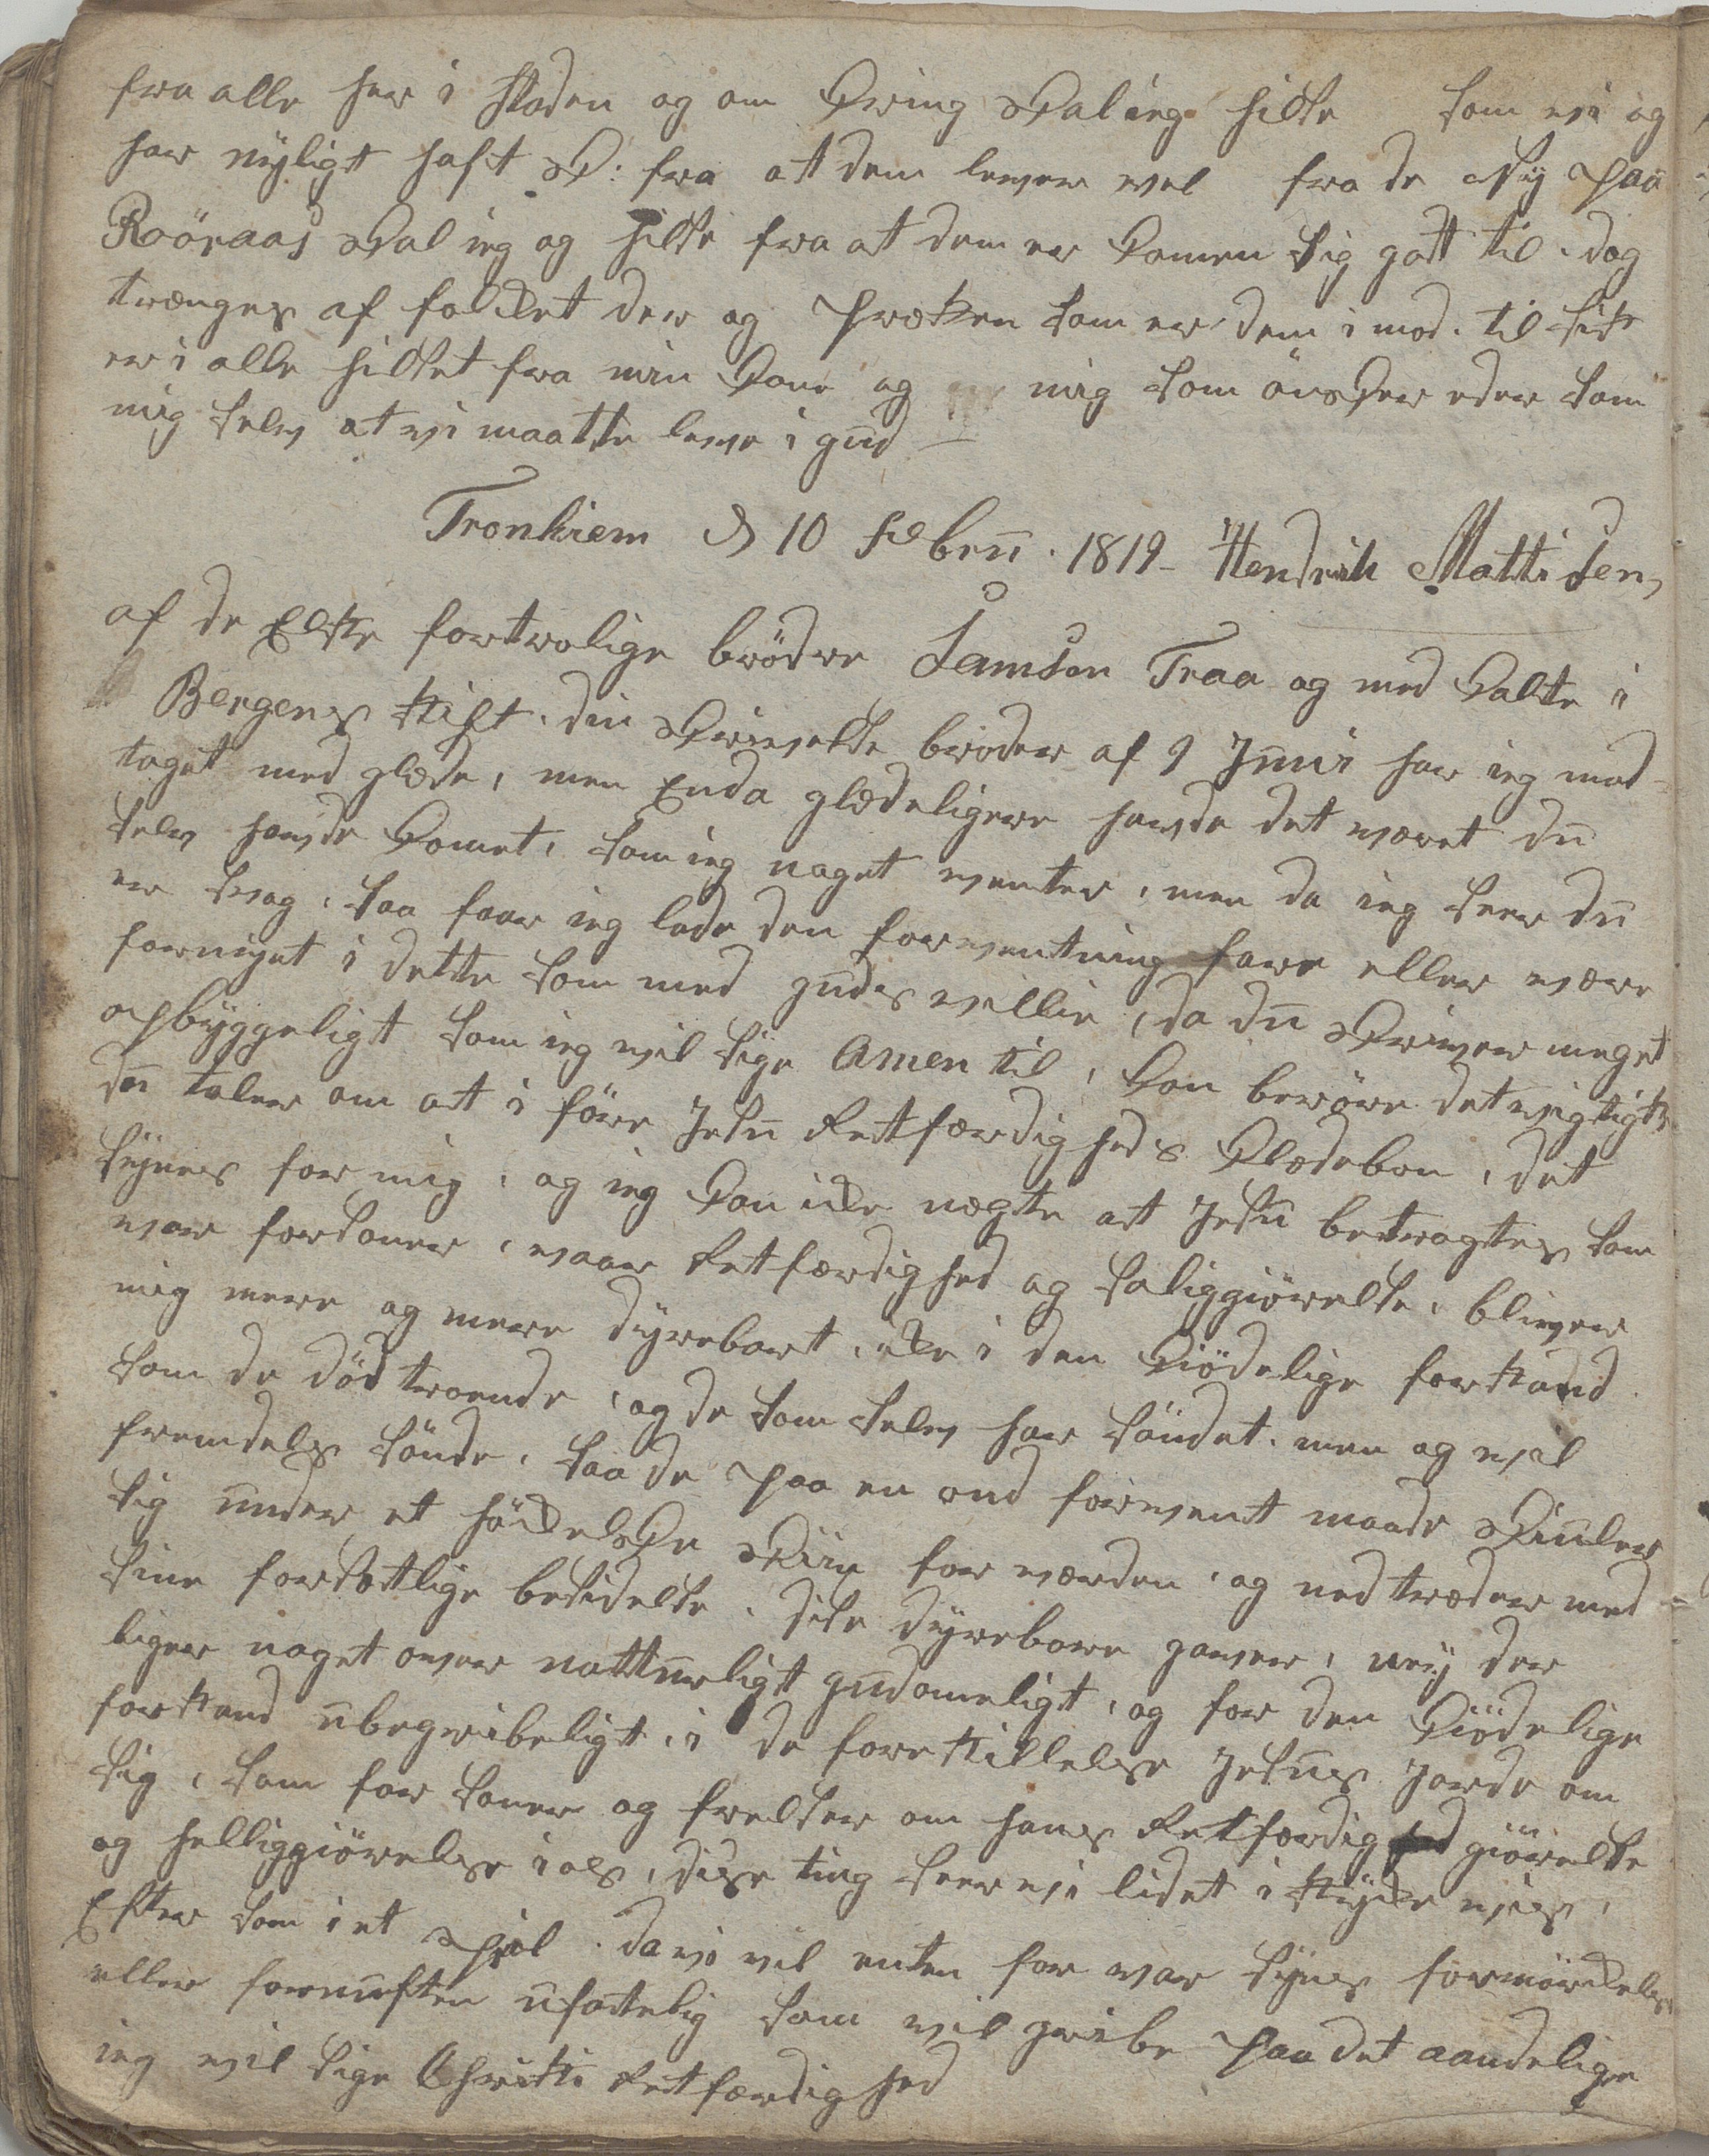 fra alle her i staden og om kring skal ieg hilse som vi og
har nyligt haft Sk: fra at dem lever vel fra de Ny paa
Röøraas skal ieg og hilse fra at dem er komen sig gott til. dog
trænges af folcket der og Præsten som er dem i mod. til sist
er i alle hilset fra min kone og mig som önsker eder som
mig selv at vi maatte leve i gud —
Tronhiem d 10 Febru. 1819 - Hendrich Mattisen,
af de Elste fortrolige brödre Samson Traa og med kalte i
Bergens stift. din skrivelse broder af 9 Junii har ieg mod-
taget med glæde, men Enda glædeligere havde det været du
selv havde komet, som ieg noget venter, men da ieg seer du
er svag, saa faar ieg lade den forventning fare eller være
fornøyet i dette som med guds villie, da du skriver meget
opbyggeligt som ieg vil sige Amen til, kan beröre det vigtigste
du taler om at i före Jesu Retfærdigheds klædebon, det
synes for mig, og ieg kan icke nægte at Jesu betragtes som
vor forsoner, vaar Retfærdighed og saliggiörelse, bliver
mig mere og mere dyrebart, icke i den kiödelige forstand
som de död troende, og de som selv har söndet. men og vil
fremdeles sönde, saa de paa en ond forvent maade skiuler
sig under et höickelske skiin for verden, og nedtræder med
sine forsetlige besidelse, dise dyrebare gaver, ney der
liger noget over natturligt gudomeligt, og for den kiödelige
forstand ubegribeligt, i de forestillelse Jesus giorde om
sig, som for soner og frelser om hans Retfærdig giörelse
og helliggiörelse i os, dise ting seer vi lidet i stycke viis,
Efter som i et speil. da vi vil enten for vor synes formörckelse
eller fornuften ufattelig som vil gribe paa det aandelige
ieg vil sige Christi Retfærdighed